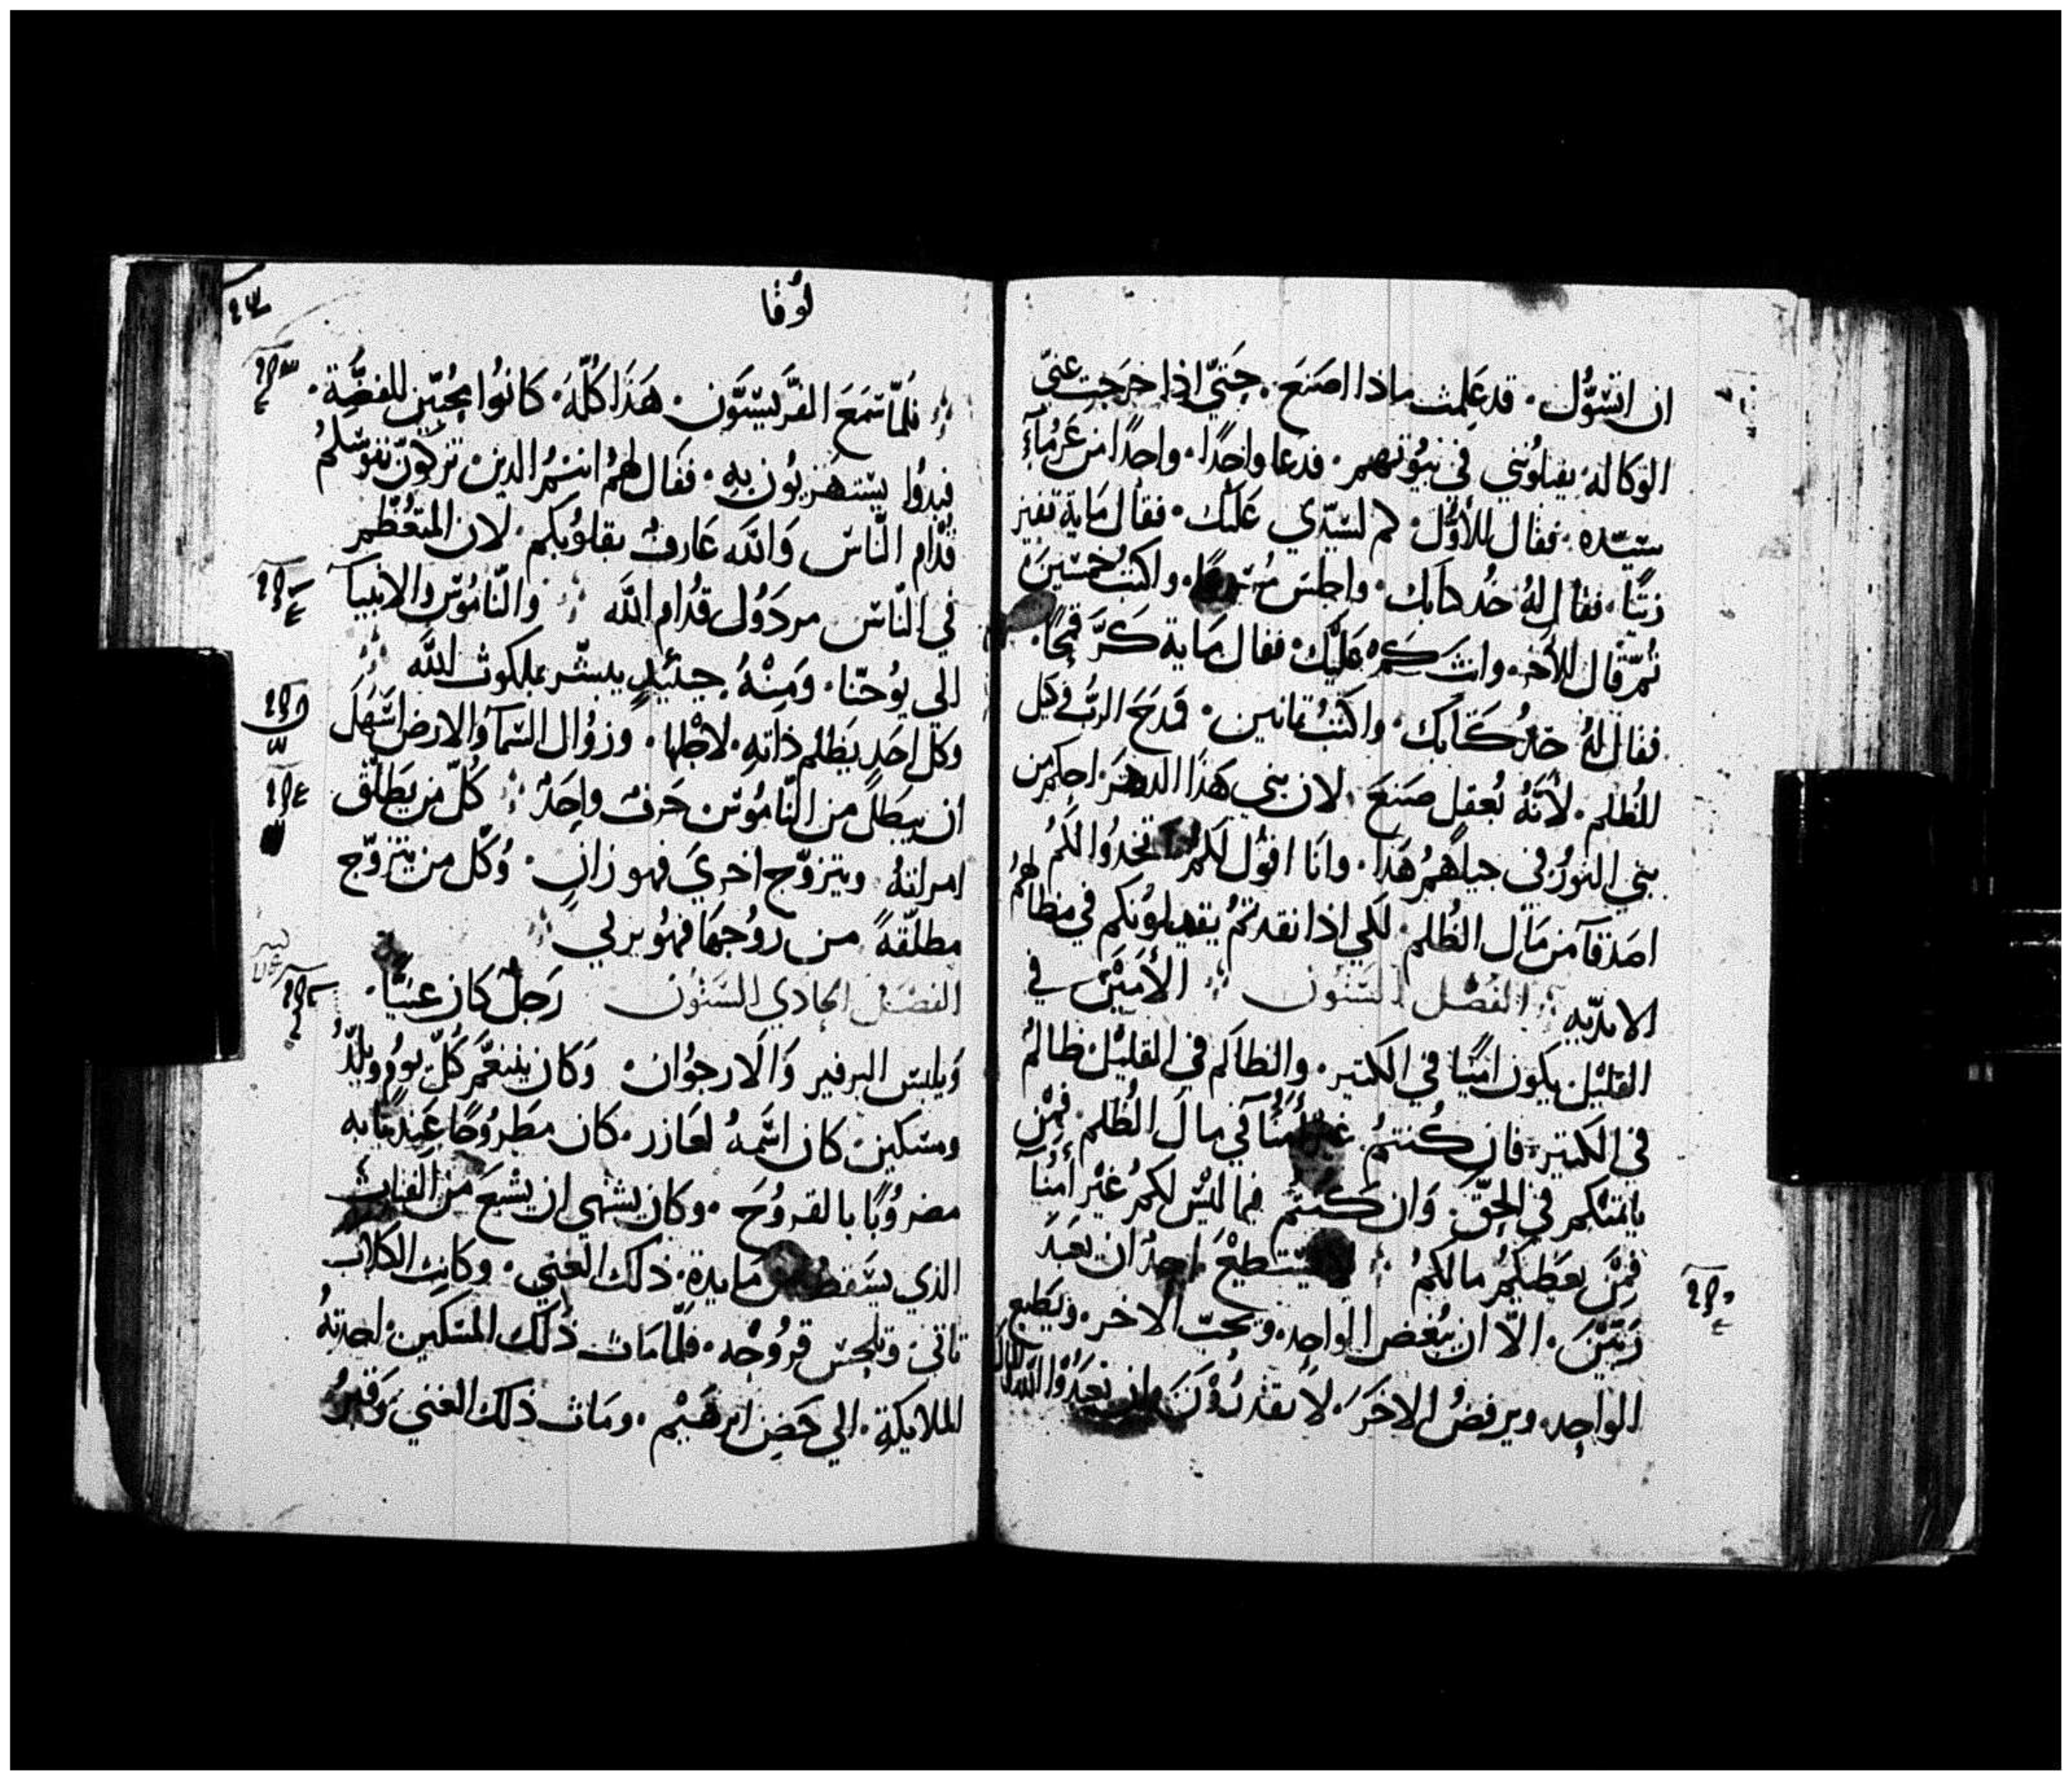 ان اتسوُّل. قد عَلِمت ماذا اصنَعَ. حَتيّ اذا خرَجت عنيّ
الوكاله يقبلوُني في بيُوتهم. فدعا واحِدًا. واحِدًا من غَرمَآءِ
سيّده. فقال للأَوّل. كم لسَيّدي عَلَيْك. فقال مَاية قفيز
زيتًا. فقال لهُ خُد كتابك. واجلس واكتب خمسين
تُمّ قال للأخر. وانت كَمْ عَلَيْك. فقال مَاية كَرّ قمحًا.
فقال لهُ خدُ كتَابَك. واكتبُ تمانين. فمَدَحَ الربُّ وَكيل
الظُلم. لأَنَّهُ بُعقل صَنعَ. لان بني هَذا الدهرَ. احكم من
بني النورُ في جيلهُم هَذا. وانَا اقوُل لكمُ اتخدُوا لكُم
اصَدقآ من مَال الظُلم. لكي اذا نفدتُم يقبلوُنكم في مظالهُم
الابديّه الفصْل السَتوُن الأَميَن في
القليْل يكون امينًا في الكتير. والظالم في القليْل ظالمٌ
في الكتير. فان كُنتمُ غيْر أمنُآ في مال الظُلم. فمِن
ياتمنكم في الحِقّ. وَان كنتُم فيما ليْس لكمُ غيْر أمنُآ
فمِن يعَطيكمُ مالكمُ لا يَسْتطيْعَ احدُ ان يعَبدَ
رَبّيْن. الاّ ان يبُغض الواحِد. ويحبّ الاخر. ويَطيع
الواحِد. ويرفضُ الاخَرَ. لا تقدرُوْنَ ان تعبَدُوْا اللّه والمال
لوُقا
فلمّا سَمعَ الفرّيسيّون. هَذَا كُلّهُ. كانوُا محُبّين للفضّة.
فبدوُا يسْتهَزيُون بهِ. فقال لهمُ انتمُ الدين تزكوّن نفوسَكمُ
قُدّام النّاس وَاللّه عَارفٌ بقلوُبكم. لان المتعُظّم
في النّاس مردَوُل قدُام اللّه والنّامُوس والانبيآ
الي يوُحَنّا. وَمِنْهُ حِينَيد يبشّر بملكوت اللّه
وكل احَدٍ يَظلم ذاتهِ. لاجْلها. وزوُال السَمآ وَالارض اسَهَل
ان يبَطل من النّامُوس حَرفٌ واحِدٌ كُلّ من يَطلّق
امراتهُ ويتزوّج اخريَ فهو زانٍ. وُكلّ من يتزوّج
مطلّقهً من زوُجهَا فهوُ يزني
الفصَل الحادي السَتوُن رَجلٌ كان غنيًّا.
وَيلبس البرفير وَالارجوُان. وَكان يتنعّمَ كُلّ يوُم ويلدّ
ومسَكين كان اسَمهُ لعَازر. كان مَطروُحًا عِند بَابه
مضروُبًا بالقروُحَ. وكان يشتهي ان يشبعَ من الفتات
الذي يسَقط من مَايدة. ذلك الغني. وكانت الكلاب
تاتي وتلحس قروُحْه. فلّمامَات ذُلك المسَكين. اخدتهُ
الملايكة. الي حَضن ابرهيْم. ومَات ذلك الغني وَقُبِرَ